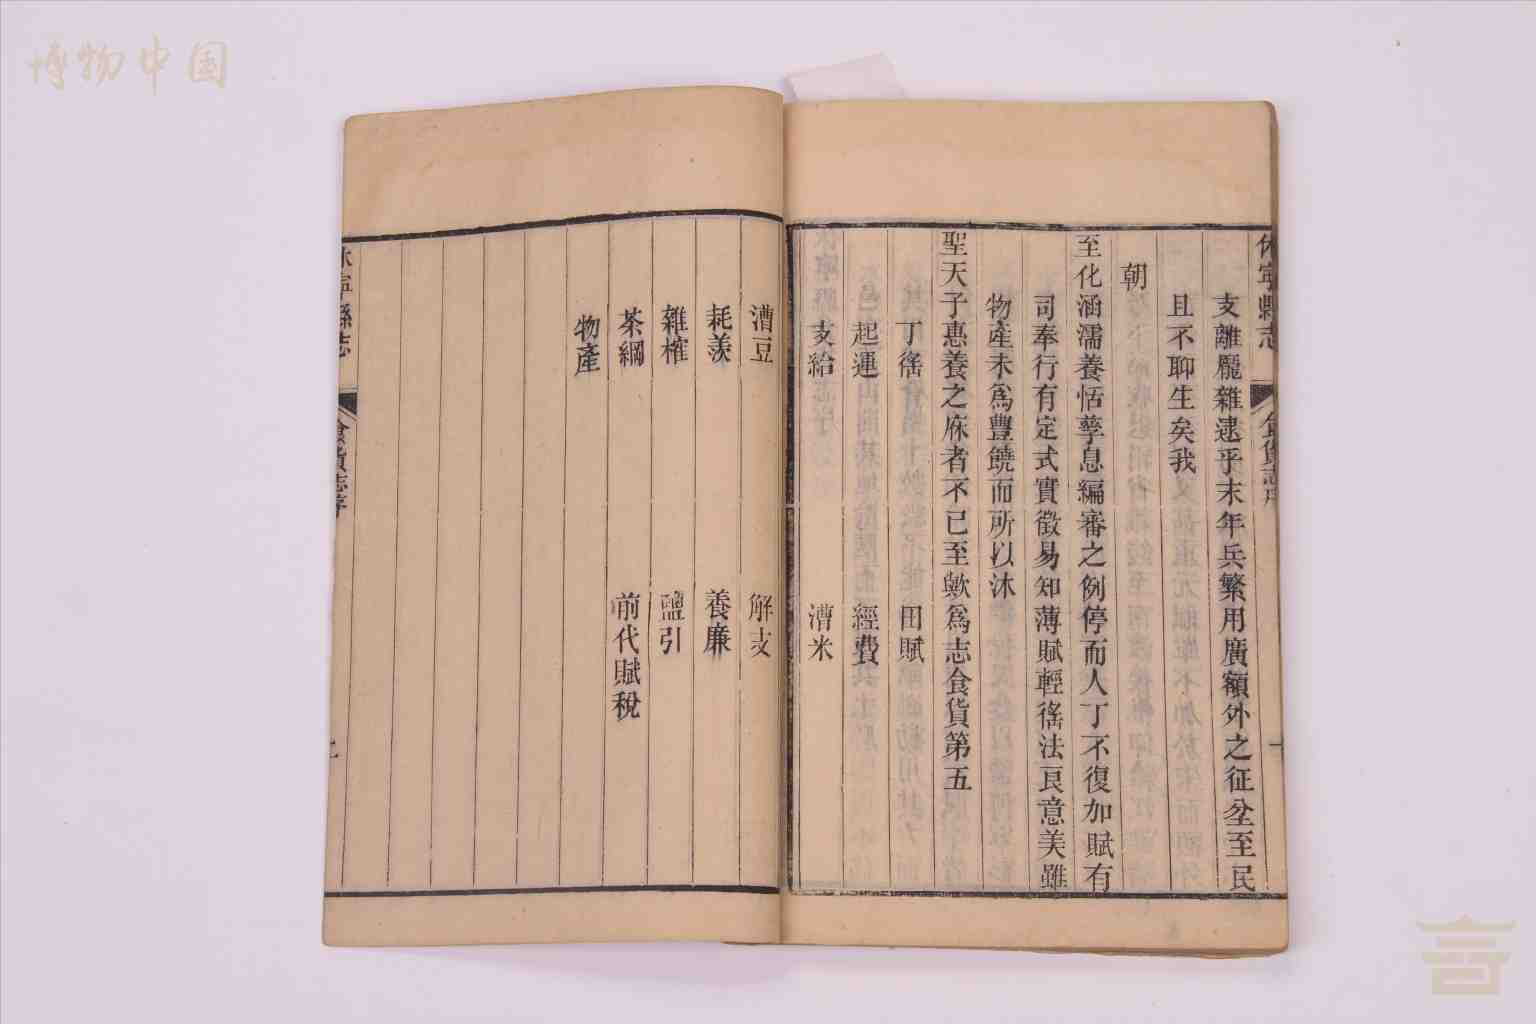 博物中国
休寧縣志
食貨志序
支離龐雜逮乎末年兵繁用廣額外之征坌至民
且不聊生矣我
朝
至化涵濡養恬孳息編審之例停而人丁不復加賦有
司奉行有定式實徵易知薄賦輕徭法良意美雖
物產未爲豐饒而所以沐
聖天子惠養之庥者不已至歟爲志食貨第五
丁徭 田賦
起運 經費
支給 漕米
漕豆 解支
耗羨 養廉
雜榷 鹽引
茶綱 前代賦稅
物產
休寧縣志
食貨志序